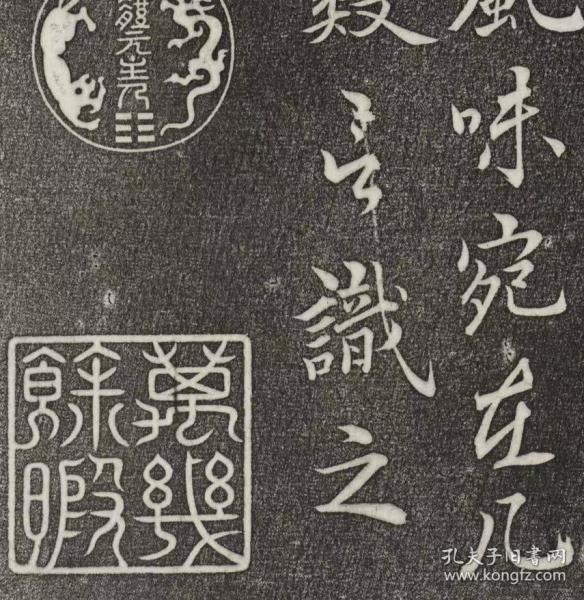 風味宛在几
數言識之
體元主人
萬幾
餘暇
孔夫子旧书网
www.kongfz.com